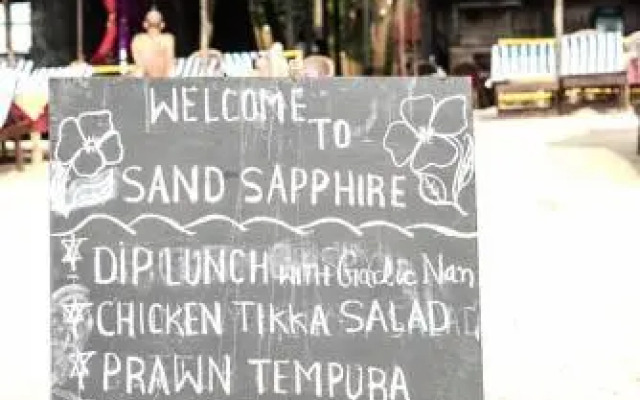 WELCOME
TO
SAND SAPPHIRE
DIP LUNCH WITH Garlic Nan
CHICKEN TIKKA SALAD
PRAWN TEMPURA